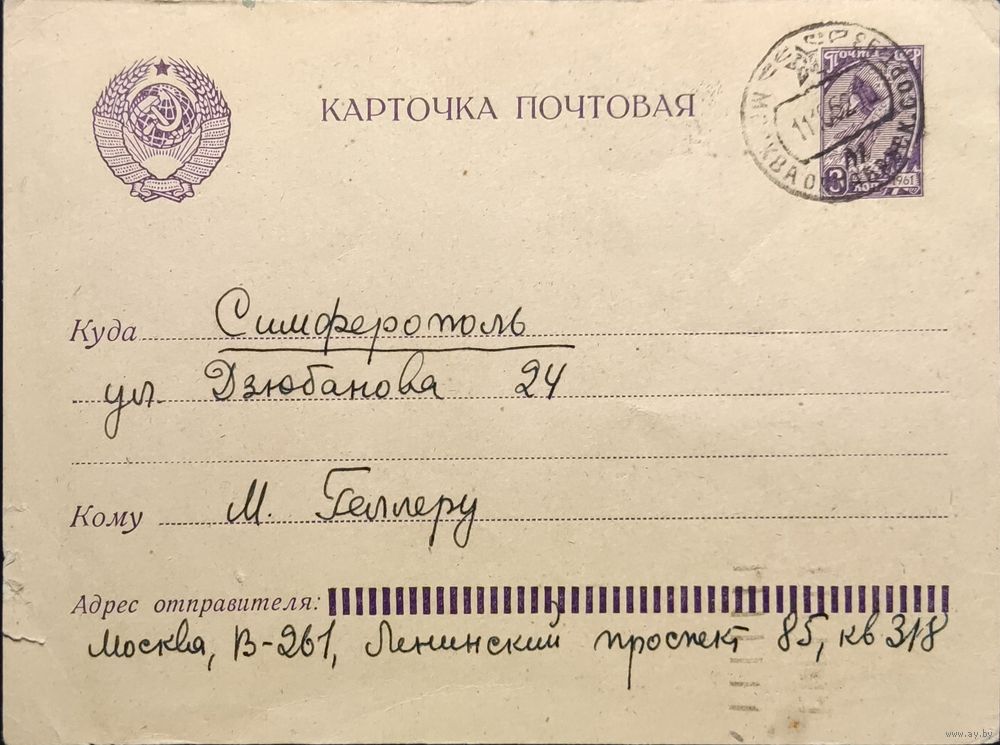 КАРТОЧКА ПОЧТОВАЯ
ПОЧТА СССР
3
КОП
1961
МОСКВА
Куда Симферополь
ул. Дзюбанова 24
Кому М. Геллеру
Адрес отправителя:
Москва, В-261, Ленинский проспект 85, кв 318
www.ay.by